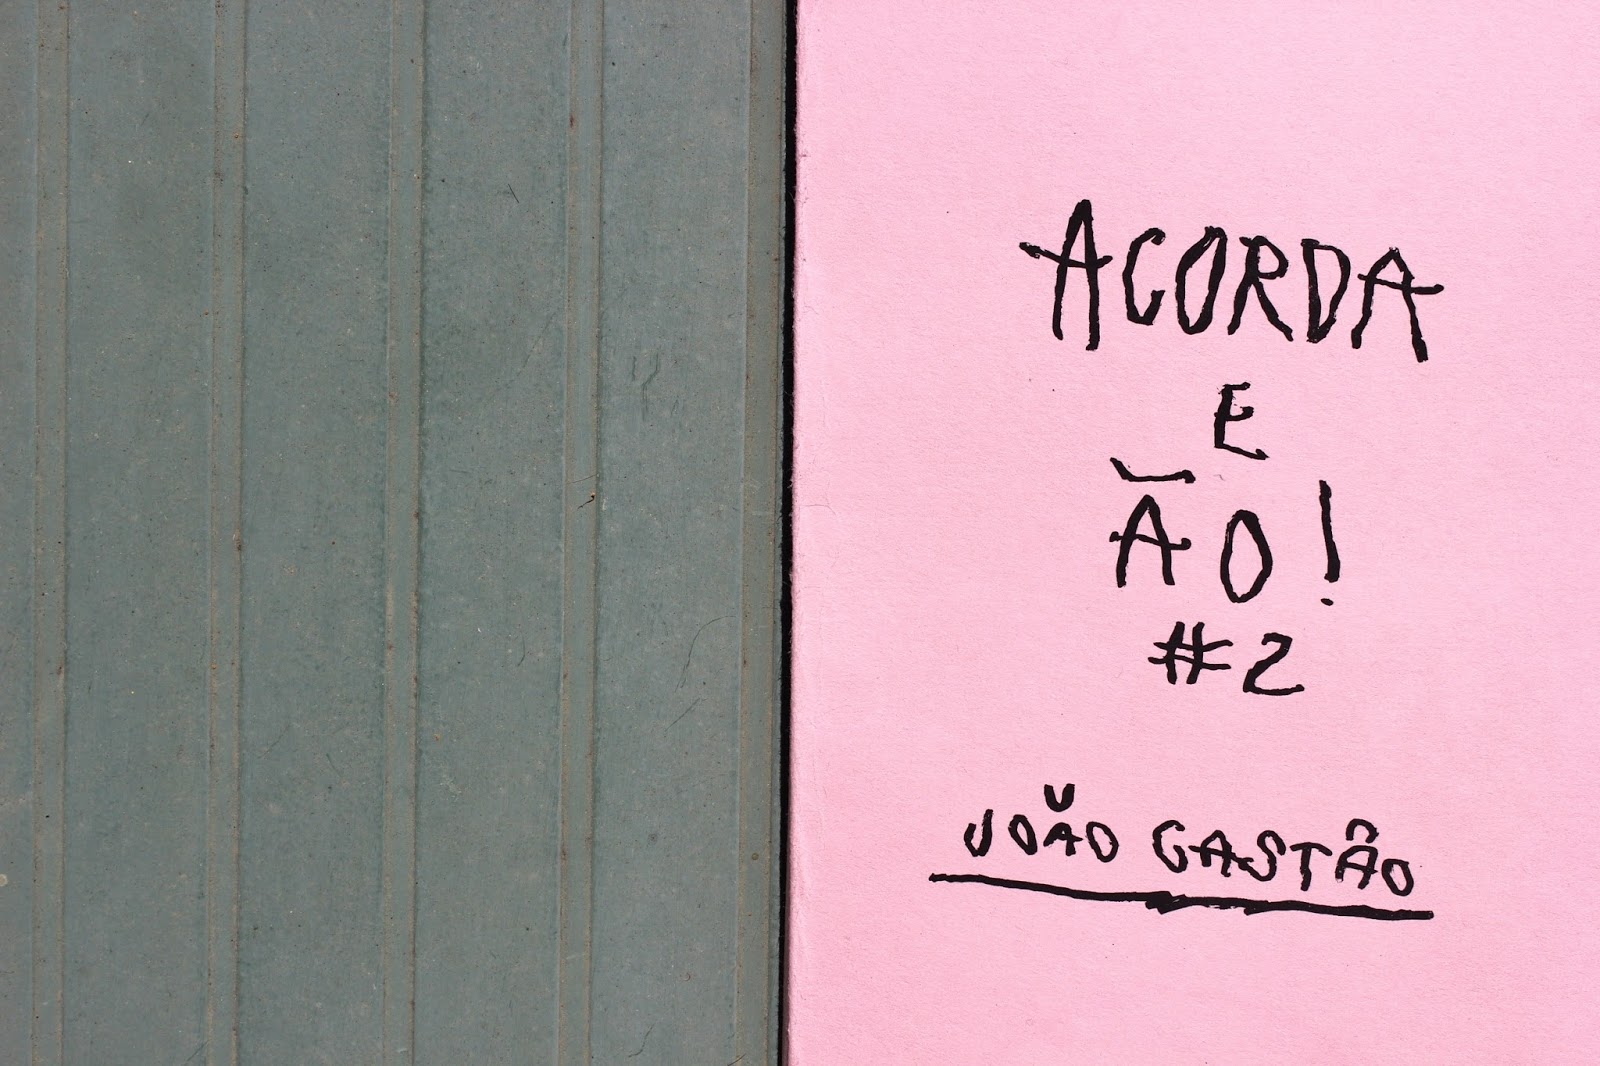 ACORDA
E
ÃO!
#2
JOÃO GASTÃO